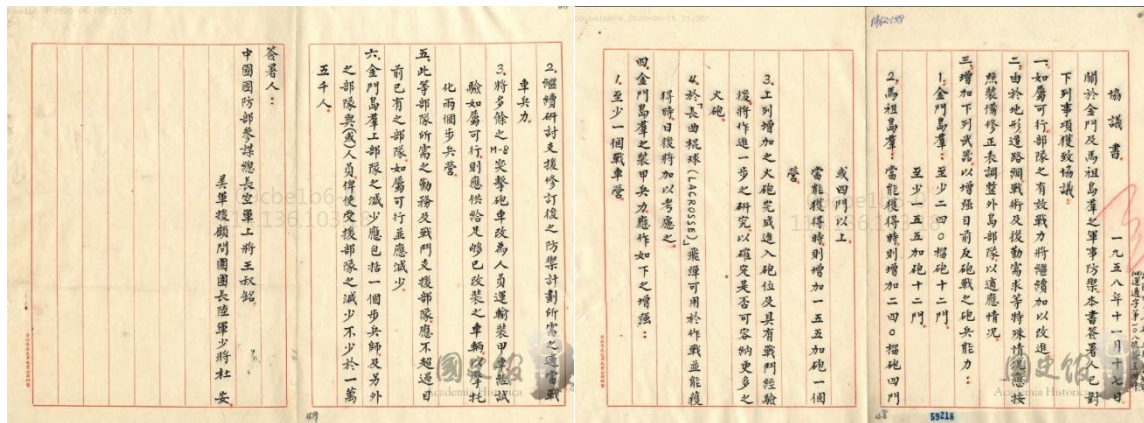 協議書　一九五八年十一月十七日
關於金門及馬祖島羣之軍事防禦本書簽署人已對
下列事項獲致協議：
一、如屬可行部隊之有效戰力將繼續加以改進。
二、由於地形道路網戰術及後勤需求等特殊情況應按
照裝備修正表調整外島部隊以適應情況。
三、增加下列武器以增強目前反砲戰之砲兵能力：
1.金門島羣：至少二四〇榴砲十二門。
至少一五五加砲十二門。
2.馬祖島羣：當能獲得時則增加二四〇榴砲四門
或四門以上
當能獲得時則增加一五五加砲一個
營。
3.上列增加之火砲完成進入砲位及具有戰鬥經驗
後將作進一步之研究以確定是否可容納更多之
火砲。
4.於「長曲棍球(LACROSSE)」飛彈可用於作戰並能獲
得時日後將加以考慮之。
四、金門島羣之裝甲兵力應作如下之增強：
1.至少一個戰車營。
59218
48
2.繼續研討支援修訂後之防禦計劃所需之適當戰
車兵力。
3.將多餘之M-8突擊砲車改為人員運輸裝甲車經試
驗如屬可行則應供給足夠已改裝之車輛以摩托
化兩個步兵營。
五、此等部隊所需之勤務及戰鬥支援部隊應不超過目
前已有之部隊如屬可行並應減少。
六、金門島羣上部隊之減少應包括一個步兵師及另外
之部隊與(或)人員俾使受援部隊之減少不少於一萬
五千人。
簽署人：
中國國防部參謀總長空軍上將王叔銘
美軍援顧問團團長陸軍少將杜安
49
國史館
Academia Historica
國史館
Academia Historica